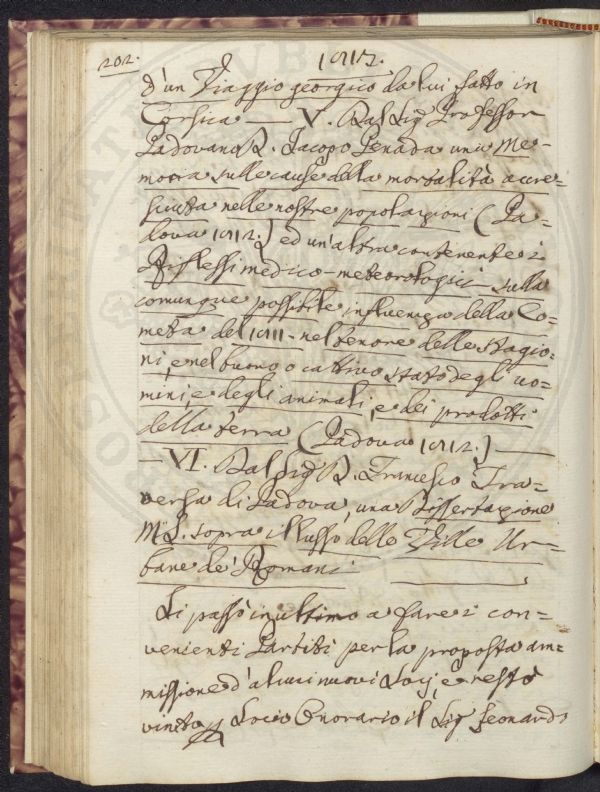 202. 1812.
d'un Viaggio georgico da lui fatto in
Corsica — V. Dal Sig. Professor
Padovano D. Jacopo Penada una Me=
moria sulle cause della mortalità accre=
sciuta nelle nostre popolazioni (Pa=
dova 1812.) ed un'altra contenente i
Riflessi medico-meteorologici sulla
comunque possibile influenza della Co=
meta del 1811. nel tenore delle stagio=
ni, e nel buono o cattivo stato degli uo=
mini e degli animali, e dei prodotti
della terra (Padova 1812.) —
— VI. Dal Sig. D. Francesco Tra=
versa di Padova, una Dissertazione
MS. sopra il lusso delle Ville Ur=
bane de' Romani —
Si passò in ultimo a fare i con=
venienti Partiti per la proposta am=
missione d'alcuni nuovi Socj, e restò
vinto Socio Onorario il Sig. Leonardo